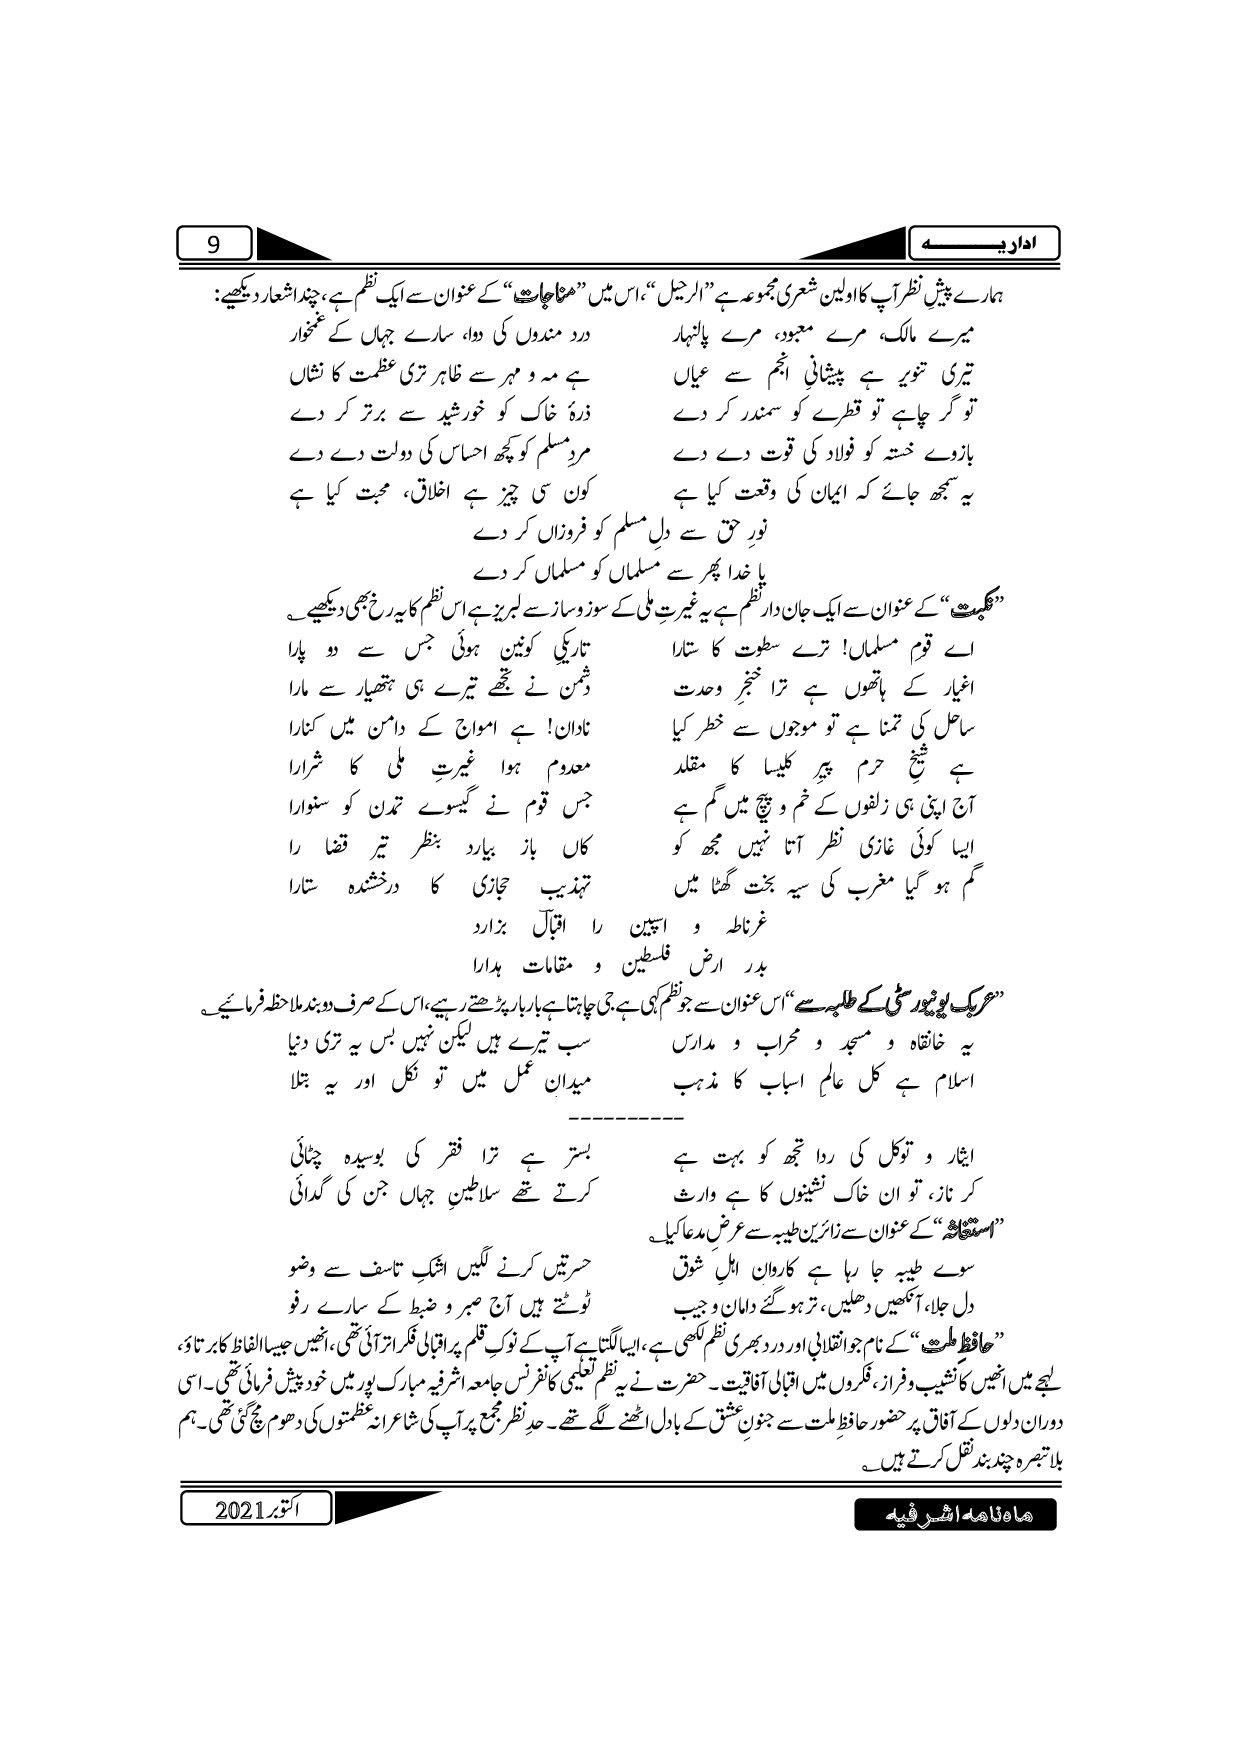 اداریہ
9
ہمارے پیشِ نظر آپ کا اولین شعری مجموعہ ہے ”الرحیل“، اس میں ”مناجات“ کے عنوان سے ایک نظم ہے، چند اشعار دیکھیے:
میرے مالک، مرے معبود، مرے پالنہار درد مندوں کی دوا، سارے جہاں کے غمخوار
تیری تنویر ہے پیشانیِ انجم سے عیاں ہے مہ و مہر سے ظاہر تری عظمت کا نشاں
تو گر چاہے تو قطرے کو سمندر کر دے ذرۂ خاک کو خورشید سے برتر کر دے
بازوے خستہ کو فولاد کی قوت دے دے مردِ مسلم کو کچھ احساس کی دولت دے دے
یہ سمجھ جائے کہ ایمان کی وقعت کیا ہے کون سی چیز ہے اخلاق، محبت کیا ہے
نورِ حق سے دلِ مسلم کو فروزاں کر دے
یا خدا پھر سے مسلماں کو مسلماں کر دے
”نکبت“ کے عنوان سے ایک جان دار نظم ہے یہ غیرتِ ملی کے سوز و ساز سے لبریز ہے اس نظم کا یہ رخ بھی دیکھیے ؎
اے قومِ مسلماں! ترے سطوت کا ستارا تاریکیِ کونین ہوئی جس سے دو پارا
اغیار کے ہاتھوں ہے ترا خنجرِ وحدت دشمن نے تجھے تیرے ہی ہتھیار سے مارا
ساحل کی تمنا ہے تو موجوں سے خطر کیا نادان! ہے امواج کے دامن میں کنارا
ہے شیخِ حرم پیرِ کلیسا کا مقلد معدوم ہوا غیرتِ ملی کا شرارا
آج اپنی ہی زلفوں کے خم و پیچ میں گم ہے جس قوم نے گیسوے تمدن کو سنوارا
ایسا کوئی غازی نظر آتا نہیں مجھ کو کاں باز بیارد بنظر تیر قضا را
گم ہو گیا مغرب کی سیہ بخت گھٹا میں تہذیب حجازی کا درخشندہ ستارا
غرناطہ و اسپین را اقبالؔ بزارد
بدر ارض فلسطین و مقامات ہدارا
”عربک یونیورسٹی کے طلبہ سے“ اس عنوان سے جو نظم کہی ہے جی چاہتا ہے بار بار پڑھتے رہیے، اس کے صرف دو بند ملاحظہ فرمائیے ؎
یہ خانقاہ و مسجد و محراب و مدارس سب تیرے ہیں لیکن نہیں بس یہ تری دنیا
اسلام ہے کل عالمِ اسباب کا مذہب میدانِ عمل میں تو نکل اور یہ بتلا
----------
ایثار و توکل کی ردا تجھ کو بہت ہے بستر ہے ترا فقر کی بوسیدہ چٹائی
کر ناز، تو ان خاک نشینوں کا ہے وارث کرتے تھے سلاطینِ جہاں جن کی گدائی
”استغاثہ“ کے عنوان سے زائرین طیبہ سے عرضِ مدعا کیا ؎
سوے طیبہ جا رہا ہے کاروانِ اہلِ شوق حسرتیں کرنے لگیں اشکِ تاسف سے وضو
دل جلا، آنکھیں دھلیں، تر ہو گئے دامان و جیب ٹوٹتے ہیں آج صبر و ضبط کے سارے رفو
”حافظِ ملت“ کے نام جو انقلابی اور درد بھری نظم لکھی ہے، ایسا لگتا ہے آپ کے نوکِ قلم پر اقبالی فکر اتر آئی تھی، انھیں جیسا الفاظ کا برتاؤ،
لہجے میں انھیں کا نشیب و فراز، فکروں میں اقبالی آفاقیت۔ حضرت نے یہ نظم تعلیمی کانفرنس جامعہ اشرفیہ مبارک پور میں خود پیش فرمائی تھی۔ اسی
دوران دلوں کے آفاق پر حضور حافظِ ملت سے جنونِ عشق کے بادل اٹھنے لگے تھے۔ حدِ نظر مجمع پر آپ کی شاعرانہ عظمتوں کی دھوم مچ گئی تھی۔ ہم
بلا تبصرہ چند بند نقل کرتے ہیں ؎
ماہنامہ اشرفیہ
اکتوبر 2021